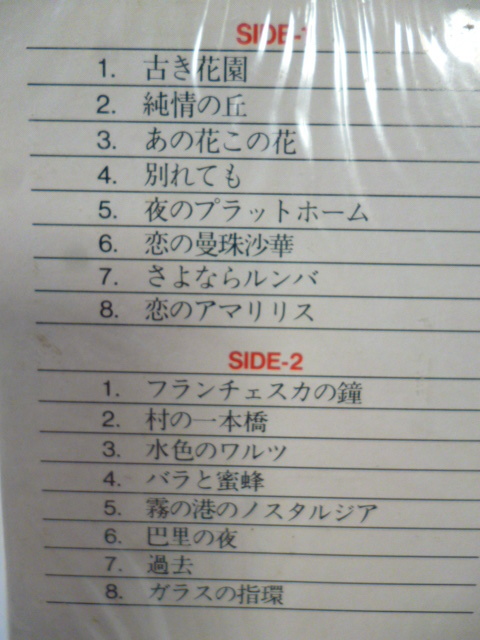 SIDE-1
1. 古き花園
2. 純情の丘
3. あの花この花
4. 別れても
5. 夜のプラットホーム
6. 恋の曼珠沙華
7. さよならルンバ
8. 恋のアマリリス
SIDE-2
1. フランチェスカの鐘
2. 村の一本橋
3. 水色のワルツ
4. バラと蜜蜂
5. 霧の港のノスタルジア
6. 巴里の夜
7. 過去
8. ガラスの指環